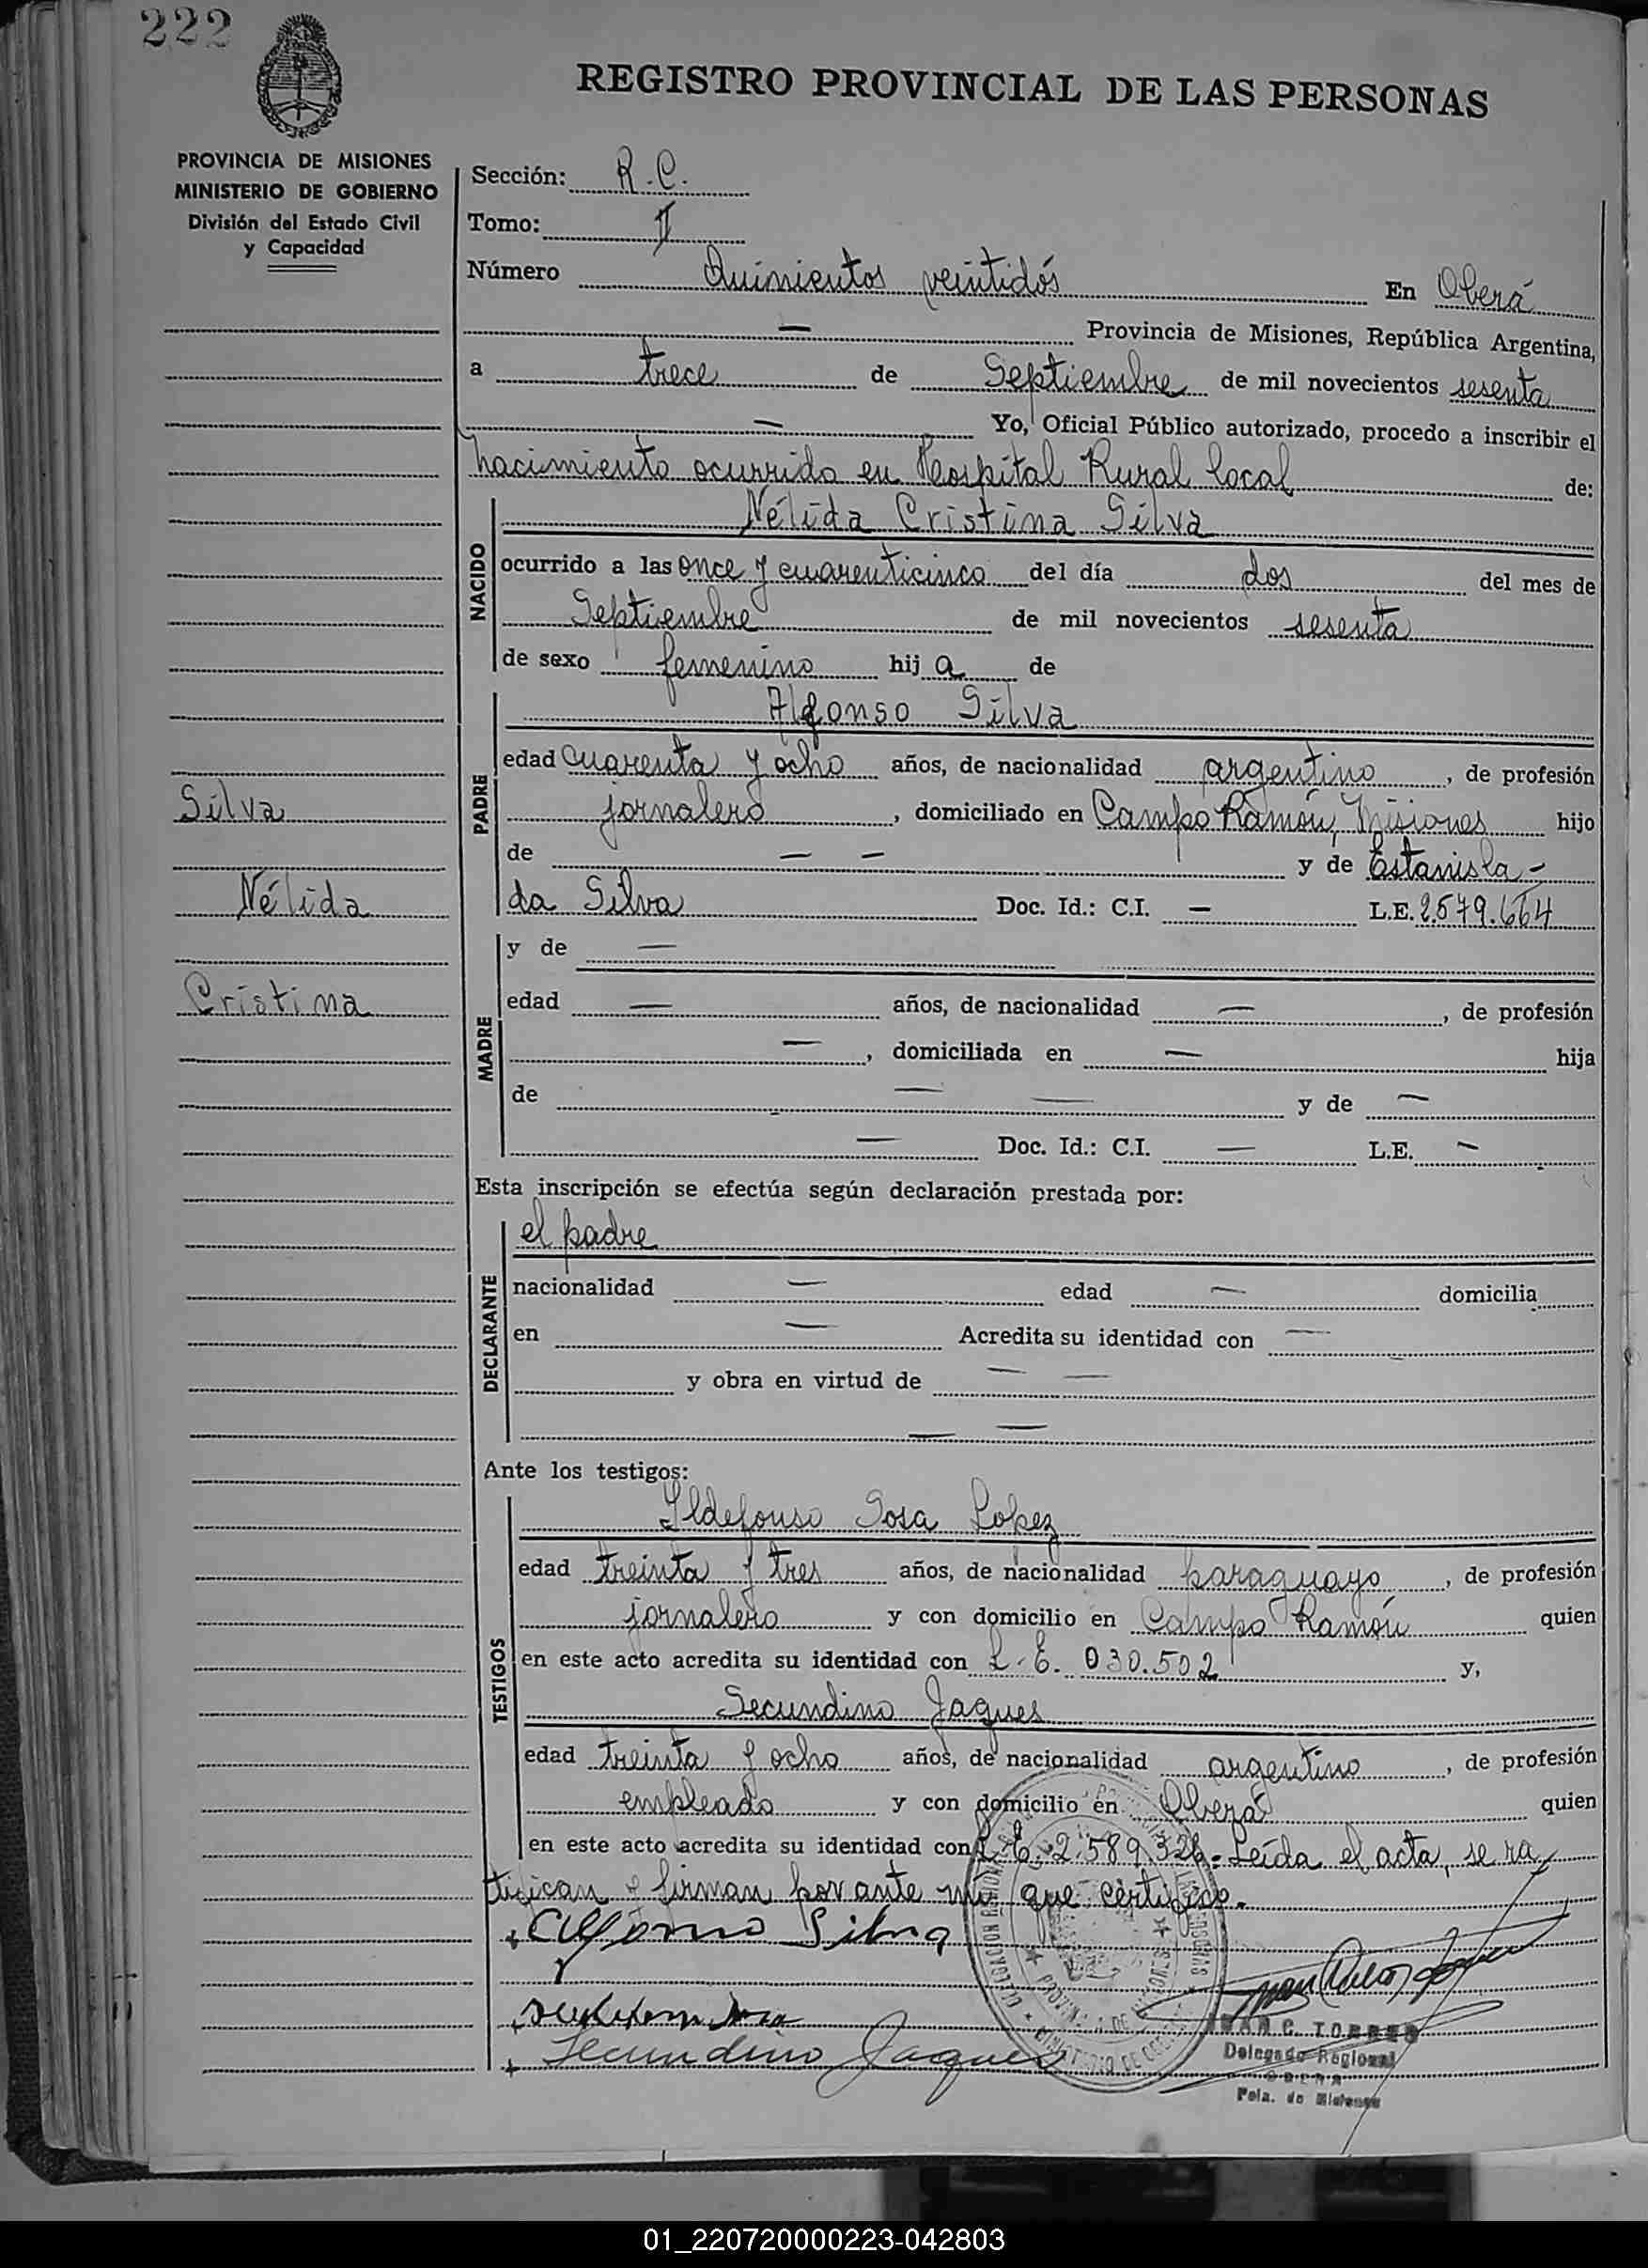 222
REGISTRO PROVINCIAL DE LAS PERSONAS
PROVINCIA DE MISIONES
MINISTERIO DE GOBIERNO
División del Estado Civil
y Capacidad
Sección: R.C.
Tomo: II
Número Quinientos veintidós En Oberá
— Provincia de Misiones, República Argentina,
a trece de Septiembre de mil novecientos sesenta
— Yo, Oficial Público autorizado, procedo a inscribir el
nacimiento ocurrido en Hospital Rural local de:
NACIDO
Nélida Cristina Silva
ocurrido a las once y cuarenticinco del día dos del mes de
Septiembre de mil novecientos sesenta
de sexo femenino hij a de
PADRE
Alfonso Silva
edad cuarenta y ocho años, de nacionalidad argentino, de profesión
Silva
jornalero, domiciliado en Campo Ramón, Misiones hijo
de — — y de Estanisla-
Nélida
da Silva Doc. Id.: C.I. — L.E. 2.579.664
MADRE
y de —
Cristina
edad — años, de nacionalidad —, de profesión
—, domiciliada en — hija
de — — y de —
— Doc. Id.: C.I. — L.E. —
Esta inscripción se efectúa según declaración prestada por:
DECLARANTE
el padre
nacionalidad — edad — domicilia
en — Acredita su identidad con —
y obra en virtud de — —
— —
Ante los testigos:
TESTIGOS
Ildefonso Sosa Lopez
edad treinta y tres años, de nacionalidad paraguayo, de profesión
jornalero y con domicilio en Campo Ramón quien
en este acto acredita su identidad con L.E. 030.502 y,
Secundino Jaques
edad treinta y ocho años, de nacionalidad argentino, de profesión
empleado y con domicilio en Oberá quien
en este acto acredita su identidad con L.E. 2.589.326.- Leída el acta, se ra
tifican y firman por ante mí que certifico.
Alfonso Silva
Secundino Jaques
JUAN C. TORRES
Delegado Regional
OBERA
Pcia. de Misiones
01_220720000223-042803